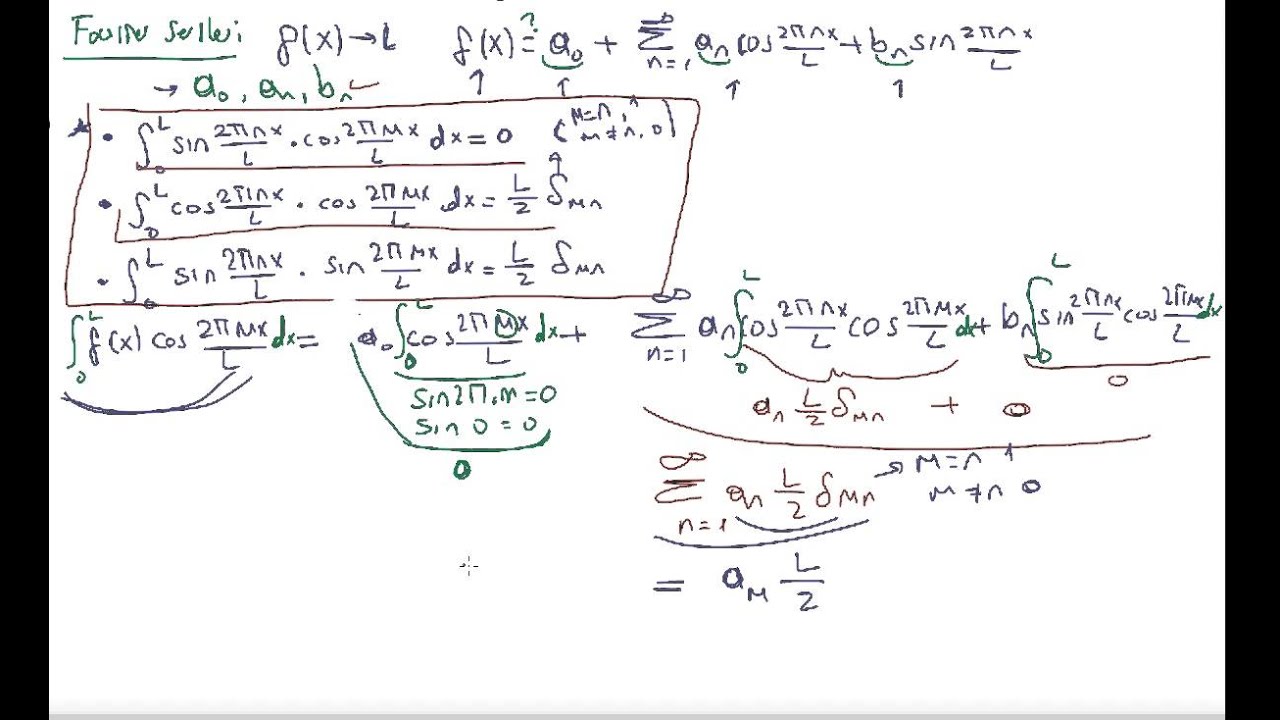 Fourier Serileri f(x) → L f(x) ≟ a₀ + ∑_{n=1}^{∞} aₙ cos 2πnx/L + bₙ sin 2πnx/L
→ a₀, aₙ, bₙ
• ∫₀ᴸ sin 2πnx/L · cos 2πmx/L dx = 0 (m=n, 1 m≠n, 0)
• ∫₀ᴸ cos 2πnx/L · cos 2πmx/L dx = L/2 δₘₙ
• ∫₀ᴸ sin 2πnx/L · sin 2πmx/L dx = L/2 δₘₙ
∫₀ᴸ f(x) cos 2πmx/L dx = a₀ ∫₀ᴸ cos 2πmx/L dx + ∑_{n=1}^{∞} aₙ ∫₀ᴸ cos 2πnx/L cos 2πmx/L dx + bₙ ∫₀ᴸ sin 2πnx/L cos 2πmx/L dx
sin 2π.m = 0
sin 0 = 0
0
0
aₙ L/2 δₘₙ + 0
∑_{n=1}^{∞} aₙ L/2 δₘₙ → m=n 1
m≠n 0
= aₘ L/2